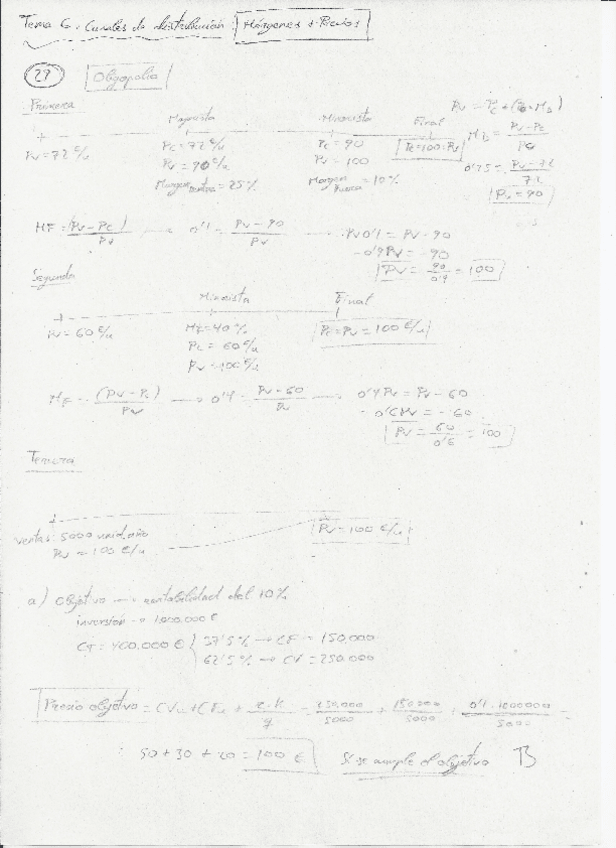 Tema 6. Canales de distribución: Márgenes y Precios
27 Oligopolio
Primera
Mayorista Minorista Final
Pv = 72 €/u
Pc = 72 €/u
Pv = 90 €/u
Margen = 25%
Pc = 90
Pv = 100
Margen = 10%
Pc = 100 = Pv
MB = Pv - Pc / Pc
0'25 = Pv - 72 / 72
Pv = 90
MF = (Pv - Pc) / Pv → 0'1 = Pv - 90 / Pv → Pv0'1 = Pv - 90
-0'9Pv = -90
Pv = 90 / 0'9 = 100
Segunda
Minorista Final
Pv = 60 €/u
MF = 40%
Pc = 60 €/u
Pv = 100 €/u
Pc = Pv = 100 €/u
MF = (Pv - Pc) / Pv → 0'4 = Pv - 60 / Pv → 0'4Pv = Pv - 60
-0'6Pv = -60
Pv = 60 / 0'6 = 100
Tercera
ventas: 5000 unid. año
Pv = 100 €/u
Pv = 100 €/u
a) Objetivo → rentabilidad del 10%
inversión → 1.000.000 €
CT = 400.000 € 37'5% → CF = 150.000
62'5% → CV = 250.000
Precio objetivo = CVu + CFu + r·K / q = 250.000 / 5000 + 150000 / 5000 + 0'1·1000000 / 5000 =
50 + 30 + 20 = 100 € Sí se cumple el objetivo B